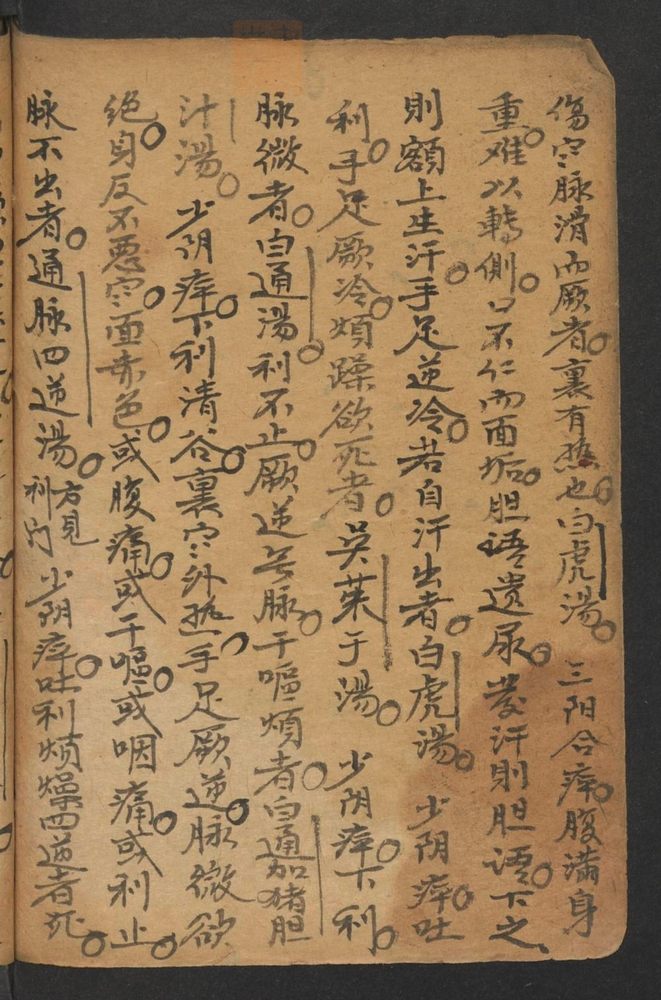 傷寒脉滑而厥者。裏有热也。白虎湯。 三阳合病。腹满身
重。难以轉側。口不仁而面垢。胆语遗尿。发汗則胆语。下之、
則額上生汗。手足逆冷。若自汗出者。白虎湯。 少阴病。吐
利。手足厥冷。煩躁欲死者。吴茱于湯。 少阴病。下利。
脉微者。白通湯。利不止。厥逆无脉。干嘔煩者。白通加猪胆
汁湯。 少阴病。下利清谷。裏寒外热。手足厥逆。脉微欲
绝。身反不恶寒。面赤色。或腹痛。或干嘔。或咽痛。或利止。
脉不出者。通脉四逆湯。方見利门 少阴病。吐利烦燥四逆者死。